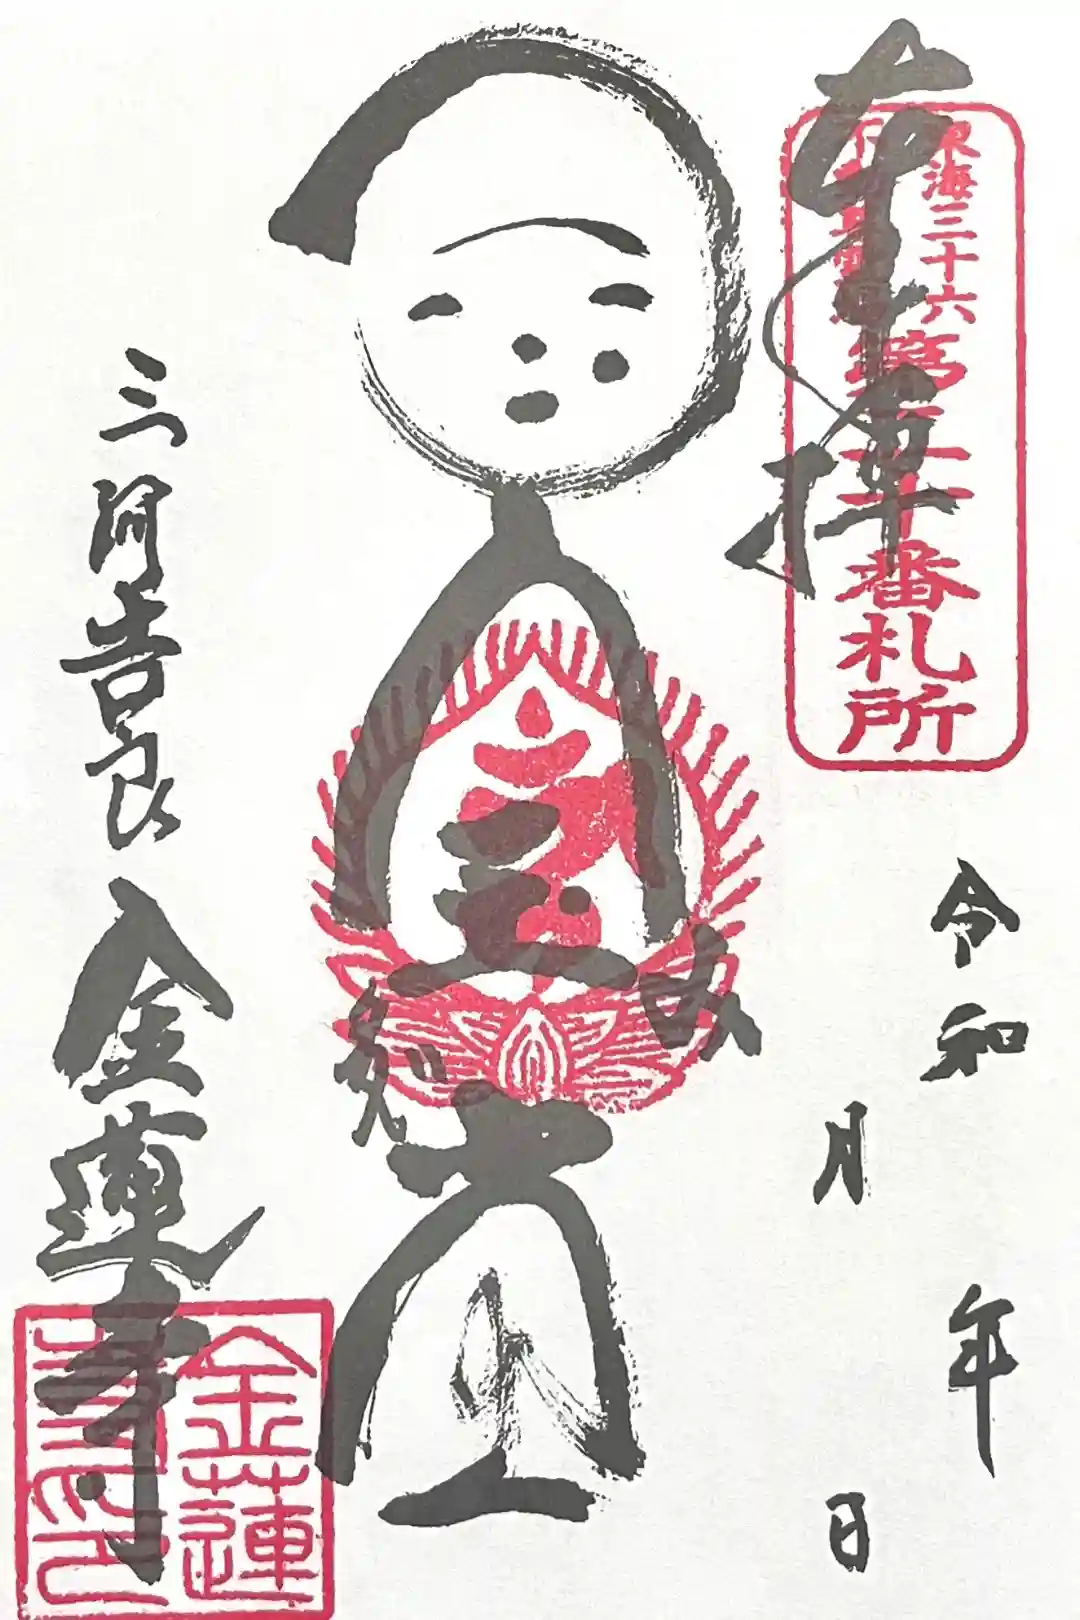 奉拝
東海三十六
不動尊霊場
第二十番札所
令和
年
月
日
三河吉良
金蓮寺
金蓮
寺印